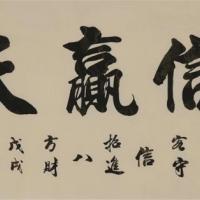 信贏天
客守
信
招進
八
方財
戊戌